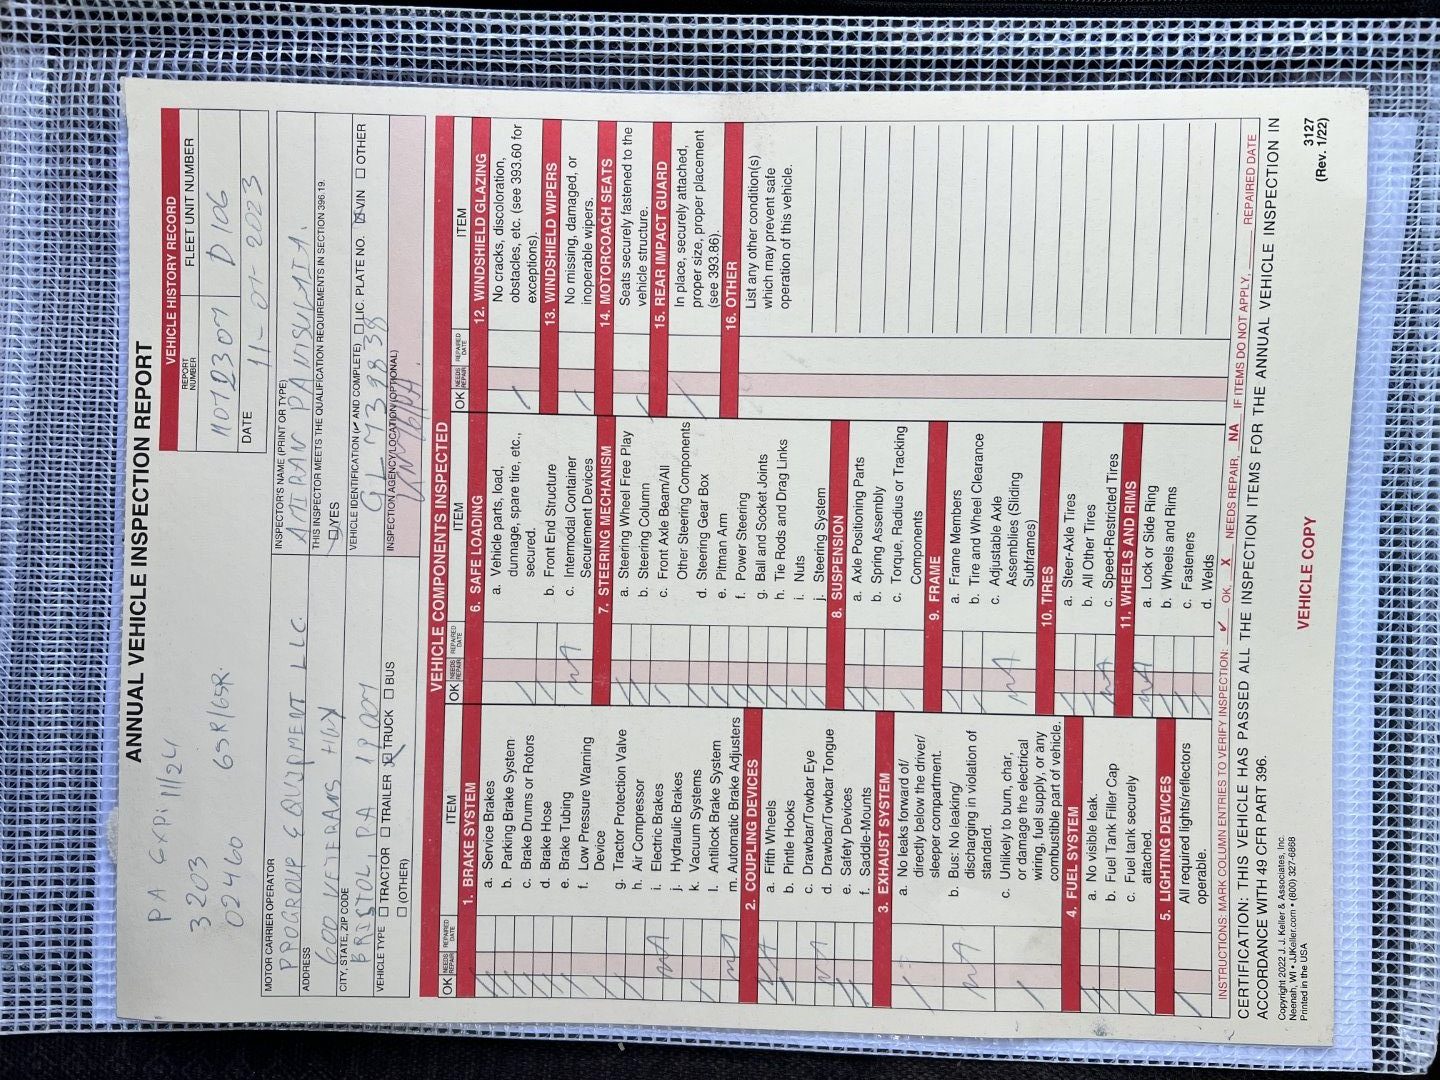 ANNUAL VEHICLE INSPECTION REPORT
PA Exp: 11/24
3203
02460 65R/65R.
VEHICLE HISTORY RECORD
REPORT NUMBER
FLEET UNIT NUMBER
D106
DATE
11-01-2023
MOTOR CARRIER OPERATOR
PPOGROUP EQUIPMENT LLC.
ADDRESS
600 VETERANS HWY
CITY, STATE, ZIP CODE
BRISTOL, PA 19007
VEHICLE TYPE ☐ TRACTOR ☐ TRAILER ☒ TRUCK ☐ BUS
☐ (OTHER)
INSPECTOR'S NAME (PRINT OR TYPE)
THIS INSPECTOR MEETS THE QUALIFICATION REQUIREMENTS IN SECTION 396.19.
☑ YES
VEHICLE IDENTIFICATION (✓ AND COMPLETE) ☐ LIC. PLATE NO. ☒ VIN ☐ OTHER
GL739838
INSPECTION AGENCY/LOCATION (OPTIONAL)
VEHICLE COMPONENTS INSPECTED
OK NEEDS REPAIR REPAIRED DATE ITEM
1. BRAKE SYSTEM
a. Service Brakes
b. Parking Brake System
c. Brake Drums or Rotors
d. Brake Hose
e. Brake Tubing
f. Low Pressure Warning
Device
g. Tractor Protection Valve
h. Air Compressor
NA i. Electric Brakes
j. Hydraulic Brakes
k. Vacuum Systems
l. Antilock Brake System
NA m. Automatic Brake Adjusters
2. COUPLING DEVICES
NA a. Fifth Wheels
b. Pintle Hooks
c. Drawbar/Towbar Eye
NA d. Drawbar/Towbar Tongue
e. Safety Devices
f. Saddle-Mounts
3. EXHAUST SYSTEM
a. No leaks forward of/
directly below the driver/
sleeper compartment.
NA b. Bus: No leaking/
discharging in violation of
standard.
c. Unlikely to burn, char,
or damage the electrical
wiring, fuel supply, or any
combustible part of vehicle.
4. FUEL SYSTEM
a. No visible leak.
b. Fuel Tank Filler Cap
c. Fuel tank securely
attached.
5. LIGHTING DEVICES
All required lights/reflectors
operable.
OK NEEDS REPAIR REPAIRED DATE ITEM
6. SAFE LOADING
a. Vehicle parts, load,
dunnage, spare tire, etc.,
secured.
b. Front End Structure
NA c. Intermodal Container
Securement Devices
7. STEERING MECHANISM
a. Steering Wheel Free Play
b. Steering Column
c. Front Axle Beam/All
Other Steering Components
d. Steering Gear Box
e. Pitman Arm
f. Power Steering
g. Ball and Socket Joints
h. Tie Rods and Drag Links
i. Nuts
j. Steering System
8. SUSPENSION
a. Axle Positioning Parts
b. Spring Assembly
c. Torque, Radius or Tracking
Components
9. FRAME
a. Frame Members
b. Tire and Wheel Clearance
NA c. Adjustable Axle
Assemblies (Sliding
Subframes)
10. TIRES
a. Steer-Axle Tires
b. All Other Tires
NA c. Speed-Restricted Tires
11. WHEELS AND RIMS
NA a. Lock or Side Ring
b. Wheels and Rims
c. Fasteners
d. Welds
OK NEEDS REPAIR REPAIRED DATE ITEM
12. WINDSHIELD GLAZING
No cracks, discoloration,
obstacles, etc. (see 393.60 for
exceptions).
13. WINDSHIELD WIPERS
No missing, damaged, or
inoperable wipers.
14. MOTORCOACH SEATS
Seats securely fastened to the
vehicle structure.
15. REAR IMPACT GUARD
In place, securely attached,
proper size, proper placement
(see 393.86).
16. OTHER
List any other condition(s)
which may prevent safe
operation of this vehicle.
INSTRUCTIONS: MARK COLUMN ENTRIES TO VERIFY INSPECTION: ✓ OK, X NEEDS REPAIR, NA IF ITEMS DO NOT APPLY, REPAIRED DATE
CERTIFICATION: THIS VEHICLE HAS PASSED ALL THE INSPECTION ITEMS FOR THE ANNUAL VEHICLE INSPECTION IN
ACCORDANCE WITH 49 CFR PART 396.
Copyright 2022 J. J. Keller & Associates, Inc.
Neenah, WI • JJKeller.com • (800) 327-6868
Printed in the USA
VEHICLE COPY
3127
(Rev. 1/22)